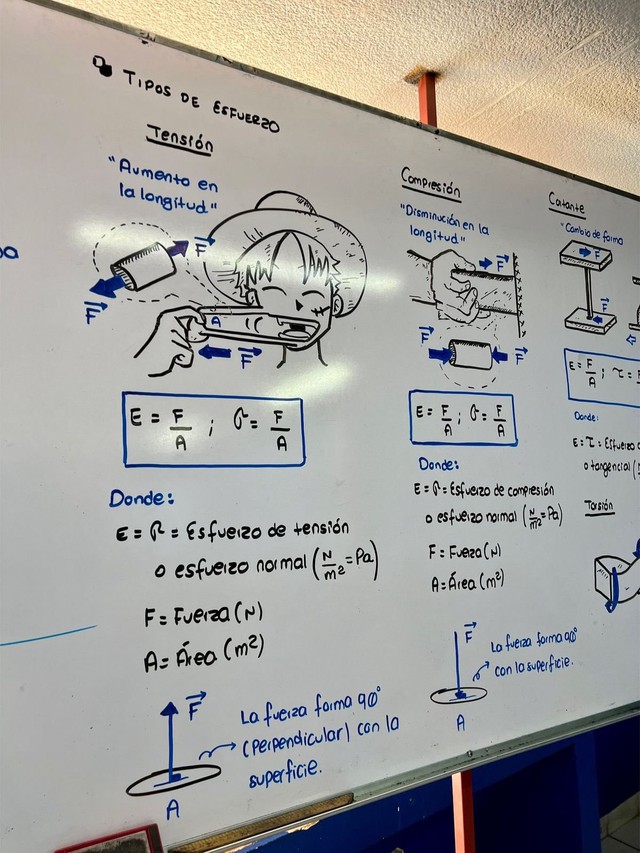 TIPOS DE ESFUERZO
Tensión
"Aumento en
la longitud"
F
F
A
F
E = F/A ; σ = F/A
Donde:
E = σ = Esfuerzo de tensión
o esfuerzo normal (N/m² = Pa)
F = Fuerza (N)
A = Área (m²)
F
A
La fuerza forma 90°
(perpendicular) con la
superficie.
Compresión
"Disminución en la
longitud"
F
F
F
E = F/A ; σ = F/A
Donde:
E = σ = Esfuerzo de compresión
o esfuerzo normal (N/m² = Pa)
F = Fuerza (N)
A = Área (m²)
F
A
La fuerza forma 90°
con la superficie.
Cortante
"Cambio de forma
F
F
E = F/A ; τ =
Donde:
E = τ = Esfuerzo
o tangencial (
Torsión